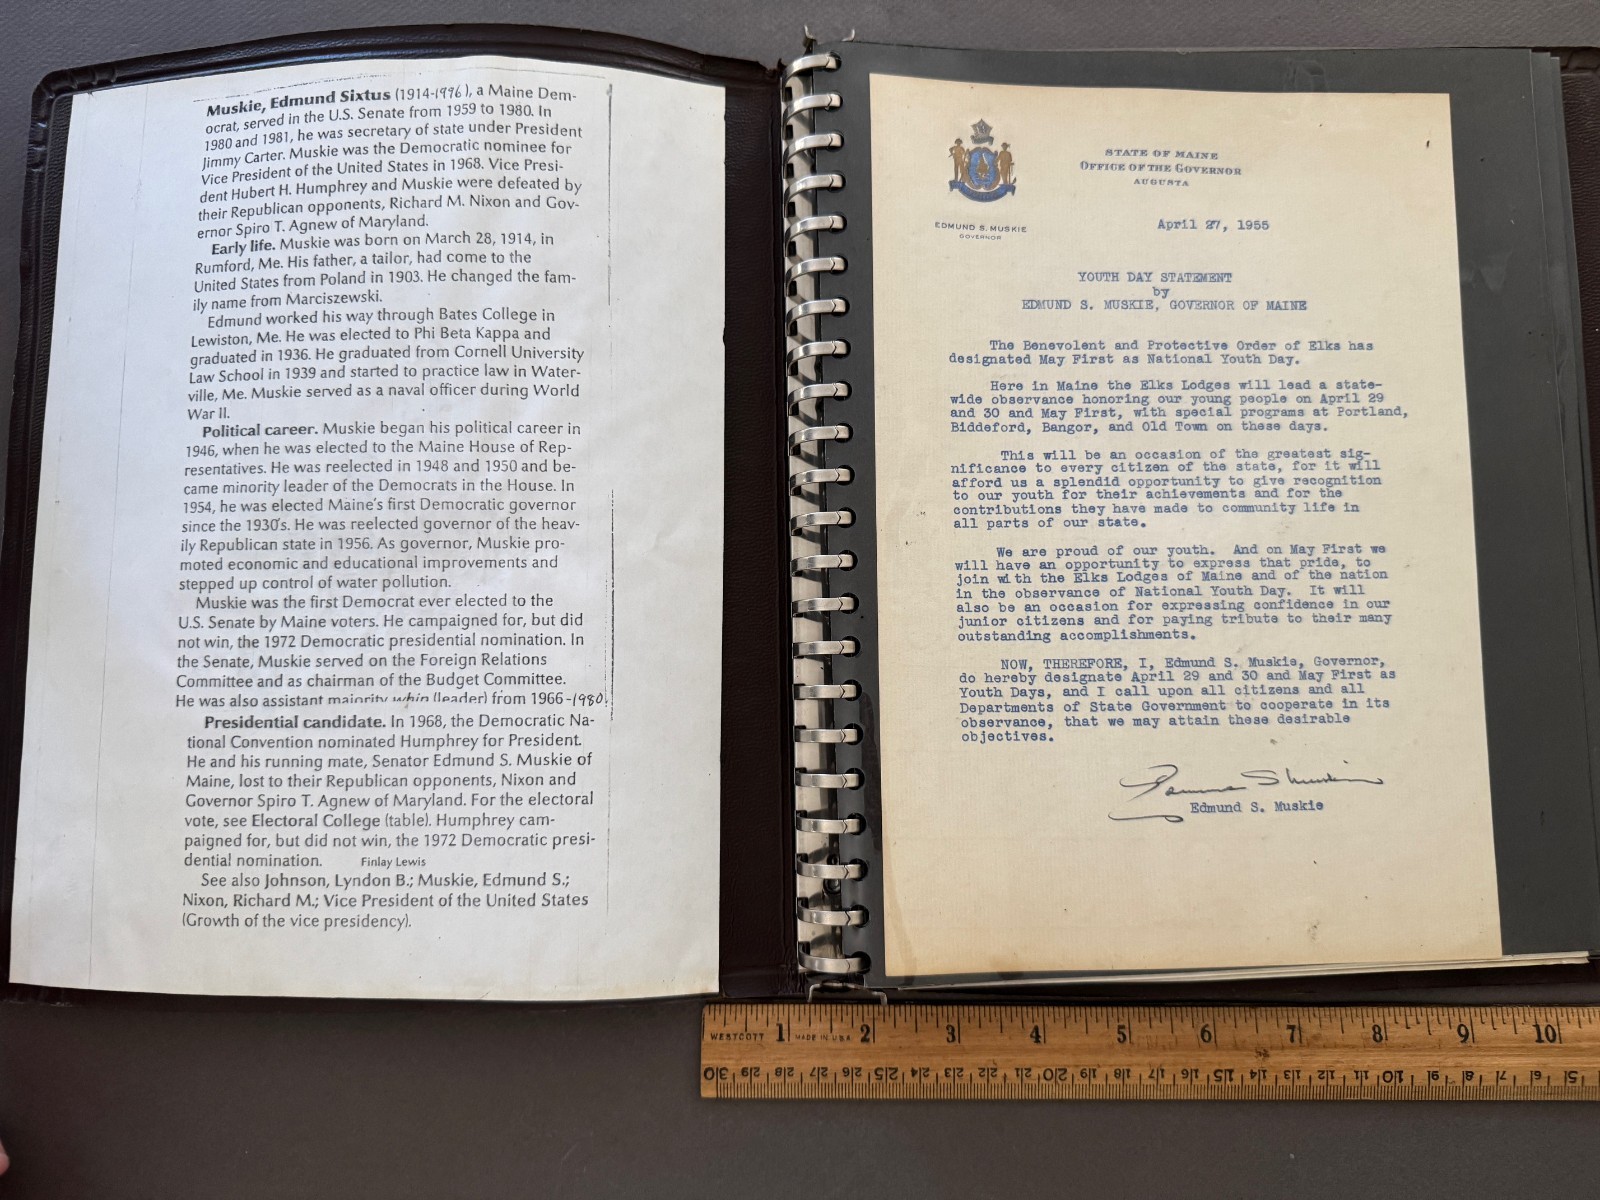 Muskie, Edmund Sixtus (1914-1996), a Maine Dem-
ocrat, served in the U.S. Senate from 1959 to 1980. In
1980 and 1981, he was secretary of state under President
Jimmy Carter. Muskie was the Democratic nominee for
Vice President of the United States in 1968. Vice Presi-
dent Hubert H. Humphrey and Muskie were defeated by
their Republican opponents, Richard M. Nixon and Gov-
ernor Spiro T. Agnew of Maryland.
Early life. Muskie was born on March 28, 1914, in
Rumford, Me. His father, a tailor, had come to the
United States from Poland in 1903. He changed the fam-
ily name from Marciszewski.
Edmund worked his way through Bates College in
Lewiston, Me. He was elected to Phi Beta Kappa and
graduated in 1936. He graduated from Cornell University
Law School in 1939 and started to practice law in Water-
ville, Me. Muskie served as a naval officer during World
War II.
Political career. Muskie began his political career in
1946, when he was elected to the Maine House of Rep-
resentatives. He was reelected in 1948 and 1950 and be-
came minority leader of the Democrats in the House. In
1954, he was elected Maine's first Democratic governor
since the 1930's. He was reelected governor of the heav-
ily Republican state in 1956. As governor, Muskie pro-
moted economic and educational improvements and
stepped up control of water pollution.
Muskie was the first Democrat ever elected to the
U.S. Senate by Maine voters. He campaigned for, but did
not win, the 1972 Democratic presidential nomination. In
the Senate, Muskie served on the Foreign Relations
Committee and as chairman of the Budget Committee.
He was also assistant majority whip (leader) from 1966-1980.
Presidential candidate. In 1968, the Democratic Na-
tional Convention nominated Humphrey for President.
He and his running mate, Senator Edmund S. Muskie of
Maine, lost to their Republican opponents, Nixon and
Governor Spiro T. Agnew of Maryland. For the electoral
vote, see Electoral College (table). Humphrey cam-
paigned for, but did not win, the 1972 Democratic presi-
dential nomination. Finlay Lewis
See also Johnson, Lyndon B.; Muskie, Edmund S.;
Nixon, Richard M.; Vice President of the United States
(Growth of the vice presidency).
STATE OF MAINE
OFFICE OF THE GOVERNOR
AUGUSTA
EDMUND S. MUSKIE
GOVERNOR
April 27, 1955
YOUTH DAY STATEMENT
by
EDMUND S. MUSKIE, GOVERNOR OF MAINE
The Benevolent and Protective Order of Elks has
designated May First as National Youth Day.
Here in Maine the Elks Lodges will lead a state-
wide observance honoring our young people on April 29
and 30 and May First, with special programs at Portland,
Biddeford, Bangor, and Old Town on these days.
This will be an occasion of the greatest sig-
nificance to every citizen of the state, for it will
afford us a splendid opportunity to give recognition
to our youth for their achievements and for the
contributions they have made to community life in
all parts of our state.
We are proud of our youth. And on May First we
will have an opportunity to express that pride, to
join with the Elks Lodges of Maine and of the nation
in the observance of National Youth Day. It will
also be an occasion for expressing confidence in our
junior citizens and for paying tribute to their many
outstanding accomplishments.
NOW, THEREFORE, I, Edmund S. Muskie, Governor,
do hereby designate April 29 and 30 and May First as
Youth Days, and I call upon all citizens and all
Departments of State Government to cooperate in its
observance, that we may attain these desirable
objectives.
Edmund S Muskie
Edmund S. Muskie
WESTCOTT 1 MADE IN U.S.A. 2 3 4 5 6 7 8 9 10
30 29 28 27 26 25 24 23 22 21 20 19 18 17 16 15 14 13 12 11 10 9 8 7 6 5